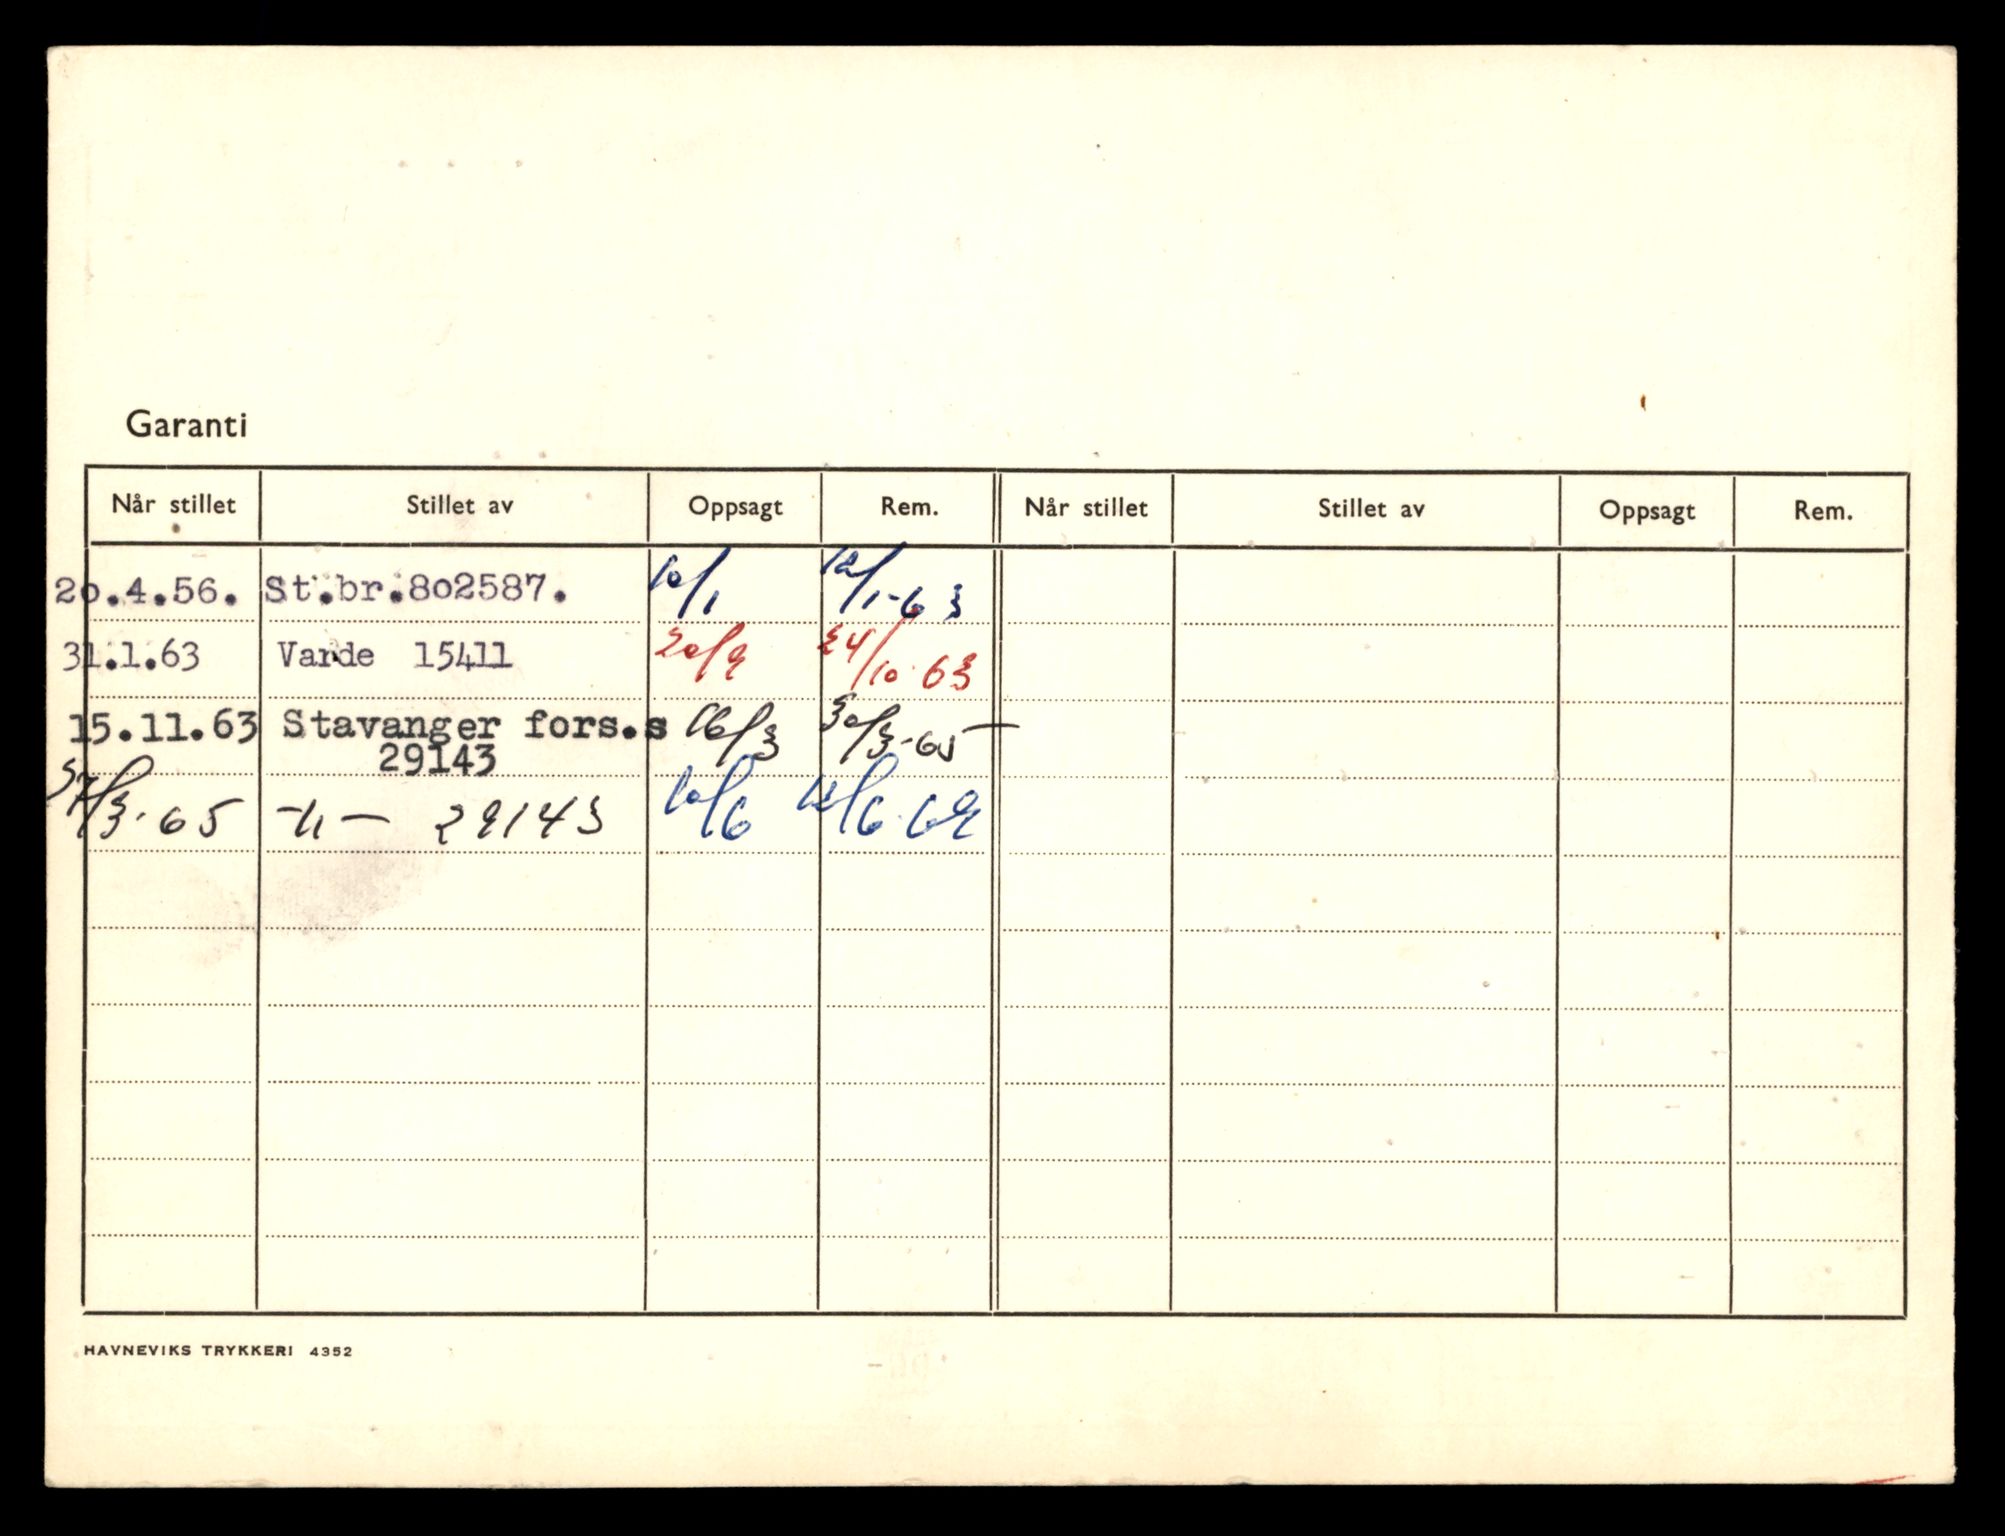 Garanti
Når stillet Stillet av Oppsagt Rem. Når stillet Stillet av Oppsagt Rem.
20.4.56. St.br.802587. 10/1 12/1-63
31.1.63 Varde 15411 20/9 24/10-63
15.11.63 Stavanger fors.s 16/3 30/3-65
29143
/3-65 -"- 29143 10/6 12/6-69
HAVNEVIKS TRYKKERI 4352